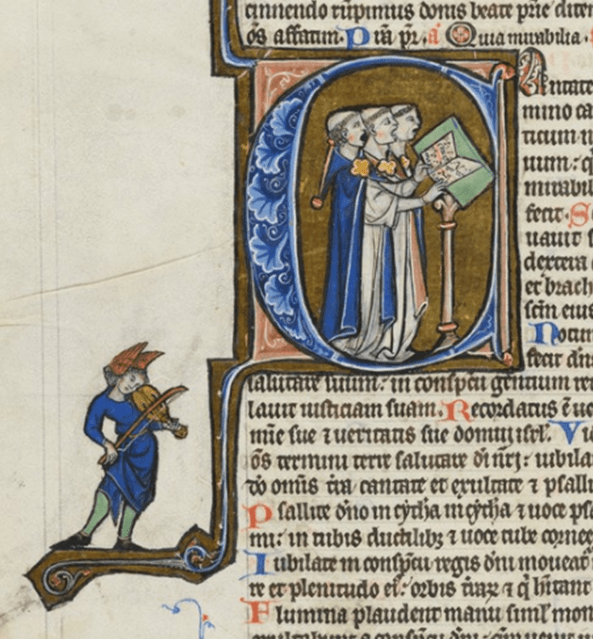 donis beate
affatim. Quia mirabilia.
C Antate
mino ca
ticum n
uum: q
mirabil
fecit. S
uauit s
dextera
et brach
sc̄m eius
Notum
fecit dn̄s
salutare suum: in conspc̄u gentium re
lauit iusticiam suam. Recordatus ē
mīe sue ⁊ ueritatis sue domui isrl̄. Vi
ōs termini terre salutare di nr̄i: iubila
do omīs tr̄a cantate et exultate ⁊ psalli
Psallite dn̄o in cytħa in cytħa ⁊ uoce ps
mi: in tubis ductilibꝫ ⁊ uoce tube cornee
Iubilate in conspc̄u regis dn̄i moueat
re et plenitudo ei᷒: orbis trāꝝ ⁊ q̇ hītant
Flumina plaudent manu siml̄ mon